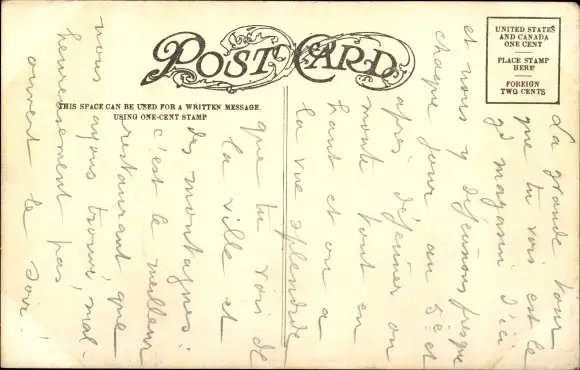 POST CARD
THIS SPACE CAN BE USED FOR A WRITTEN MESSAGE,
USING ONE-CENT STAMP
UNITED STATES
AND CANADA
ONE CENT
PLACE STAMP
HERE
FOREIGN
TWO CENTS
La grande tour
que tu vois est le
gd magasin d'ici
et nous y déjeunons presque
chaque jour au 5e et
après déjeuner on
monte tout en
haut et on a
la vue splendide
que tu vois de
la ville et
des montagnes:
c'est le meilleur
restaurant que
nous ayons trouvé, mal-
heureusement pas
ouvert le soir!